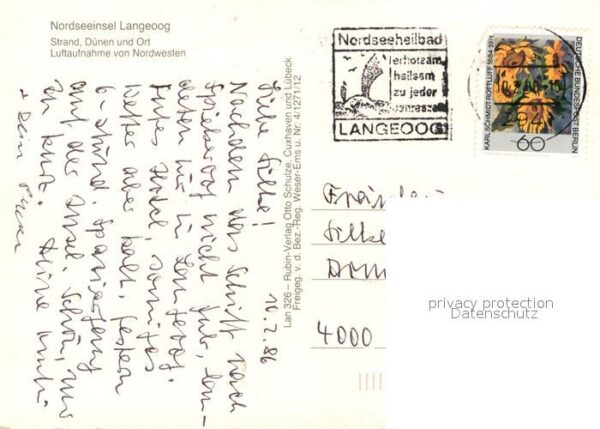 Nordseeinsel Langeoog
Strand, Dünen und Ort
Luftaufnahme von Nordwesten
Nordseeheilbad
erholsam
heilsam
zu jeder
Jahreszeit
LANGEOOG
DEUTSCHE BUNDESPOST BERLIN
KARL SCHMIDT-ROTTLUFF 1884-1976
60
Lan 326 – Rubin-Verlag Otto Schulze, Cuxhaven und Lübeck
Freigeg. v. d. Bez.-Reg. Weser-Ems u. Nr. 4/1271/12
10.2.86
Liebe Silke!
Nachdem das Schiff nach
Spiekeroog nicht fuhr, lan-
deten wir in Langeoog.
Gutes Hotel, sonniges
Wetter aber kalt. Gestern
6-stünd. Spaziergang
auf der Insel. Schön, nur
zu kurz. Deine
+ Dein
Fräulein
Silke
4000
privacy protection
Datenschutz